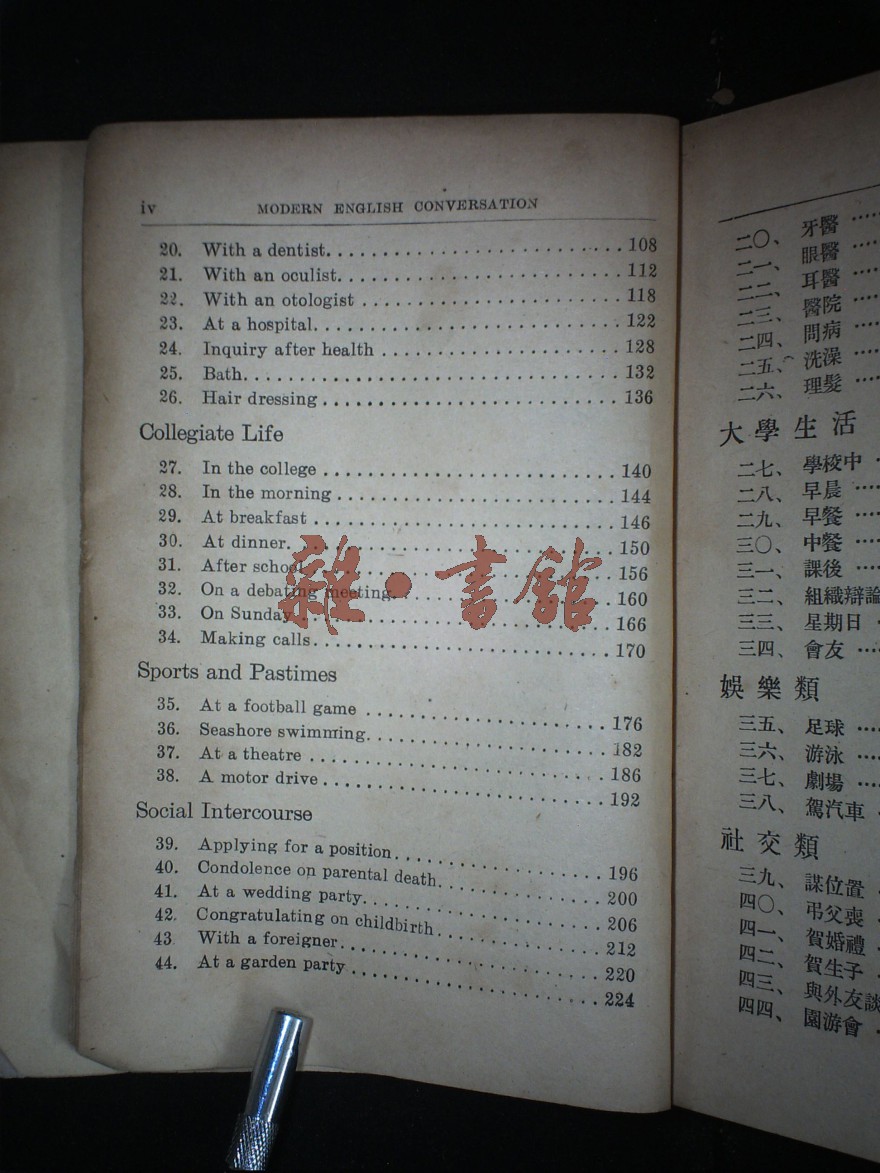 iv MODERN ENGLISH CONVERSATION
20. With a dentist 108
21. With an oculist 112
22. With an otologist 118
23. At a hospital 122
24. Inquiry after health 128
25. Bath 132
26. Hair dressing 136
Collegiate Life
27. In the college 140
28. In the morning 144
29. At breakfast 146
30. At dinner 150
31. After school 156
32. On a debating meeting 160
33. On Sunday 166
34. Making calls 170
Sports and Pastimes
35. At a football game 176
36. Seashore swimming 182
37. At a theatre 186
38. A motor drive 192
Social Intercourse
39. Applying for a position 196
40. Condolence on parental death 200
41. At a wedding party 206
42. Congratulating on childbirth 212
43. With a foreigner 220
44. At a garden party 224
雜·書館
二〇、 牙醫
二一、 眼醫
二二、 耳醫
二三、 醫院
二四、 問病
二五、 洗澡
二六、 理髮
大學生活
二七、 學校中
二八、 早晨
二九、 早餐
三〇、 中餐
三一、 課後
三二、 組織辯論
三三、 星期日
三四、 會友
娛樂類
三五、 足球
三六、 游泳
三七、 劇場
三八、 駕汽車
社交類
三九、 謀位置
四〇、 弔父喪
四一、 賀婚禮
四二、 賀生子
四三、 與外友談
四四、 園游會